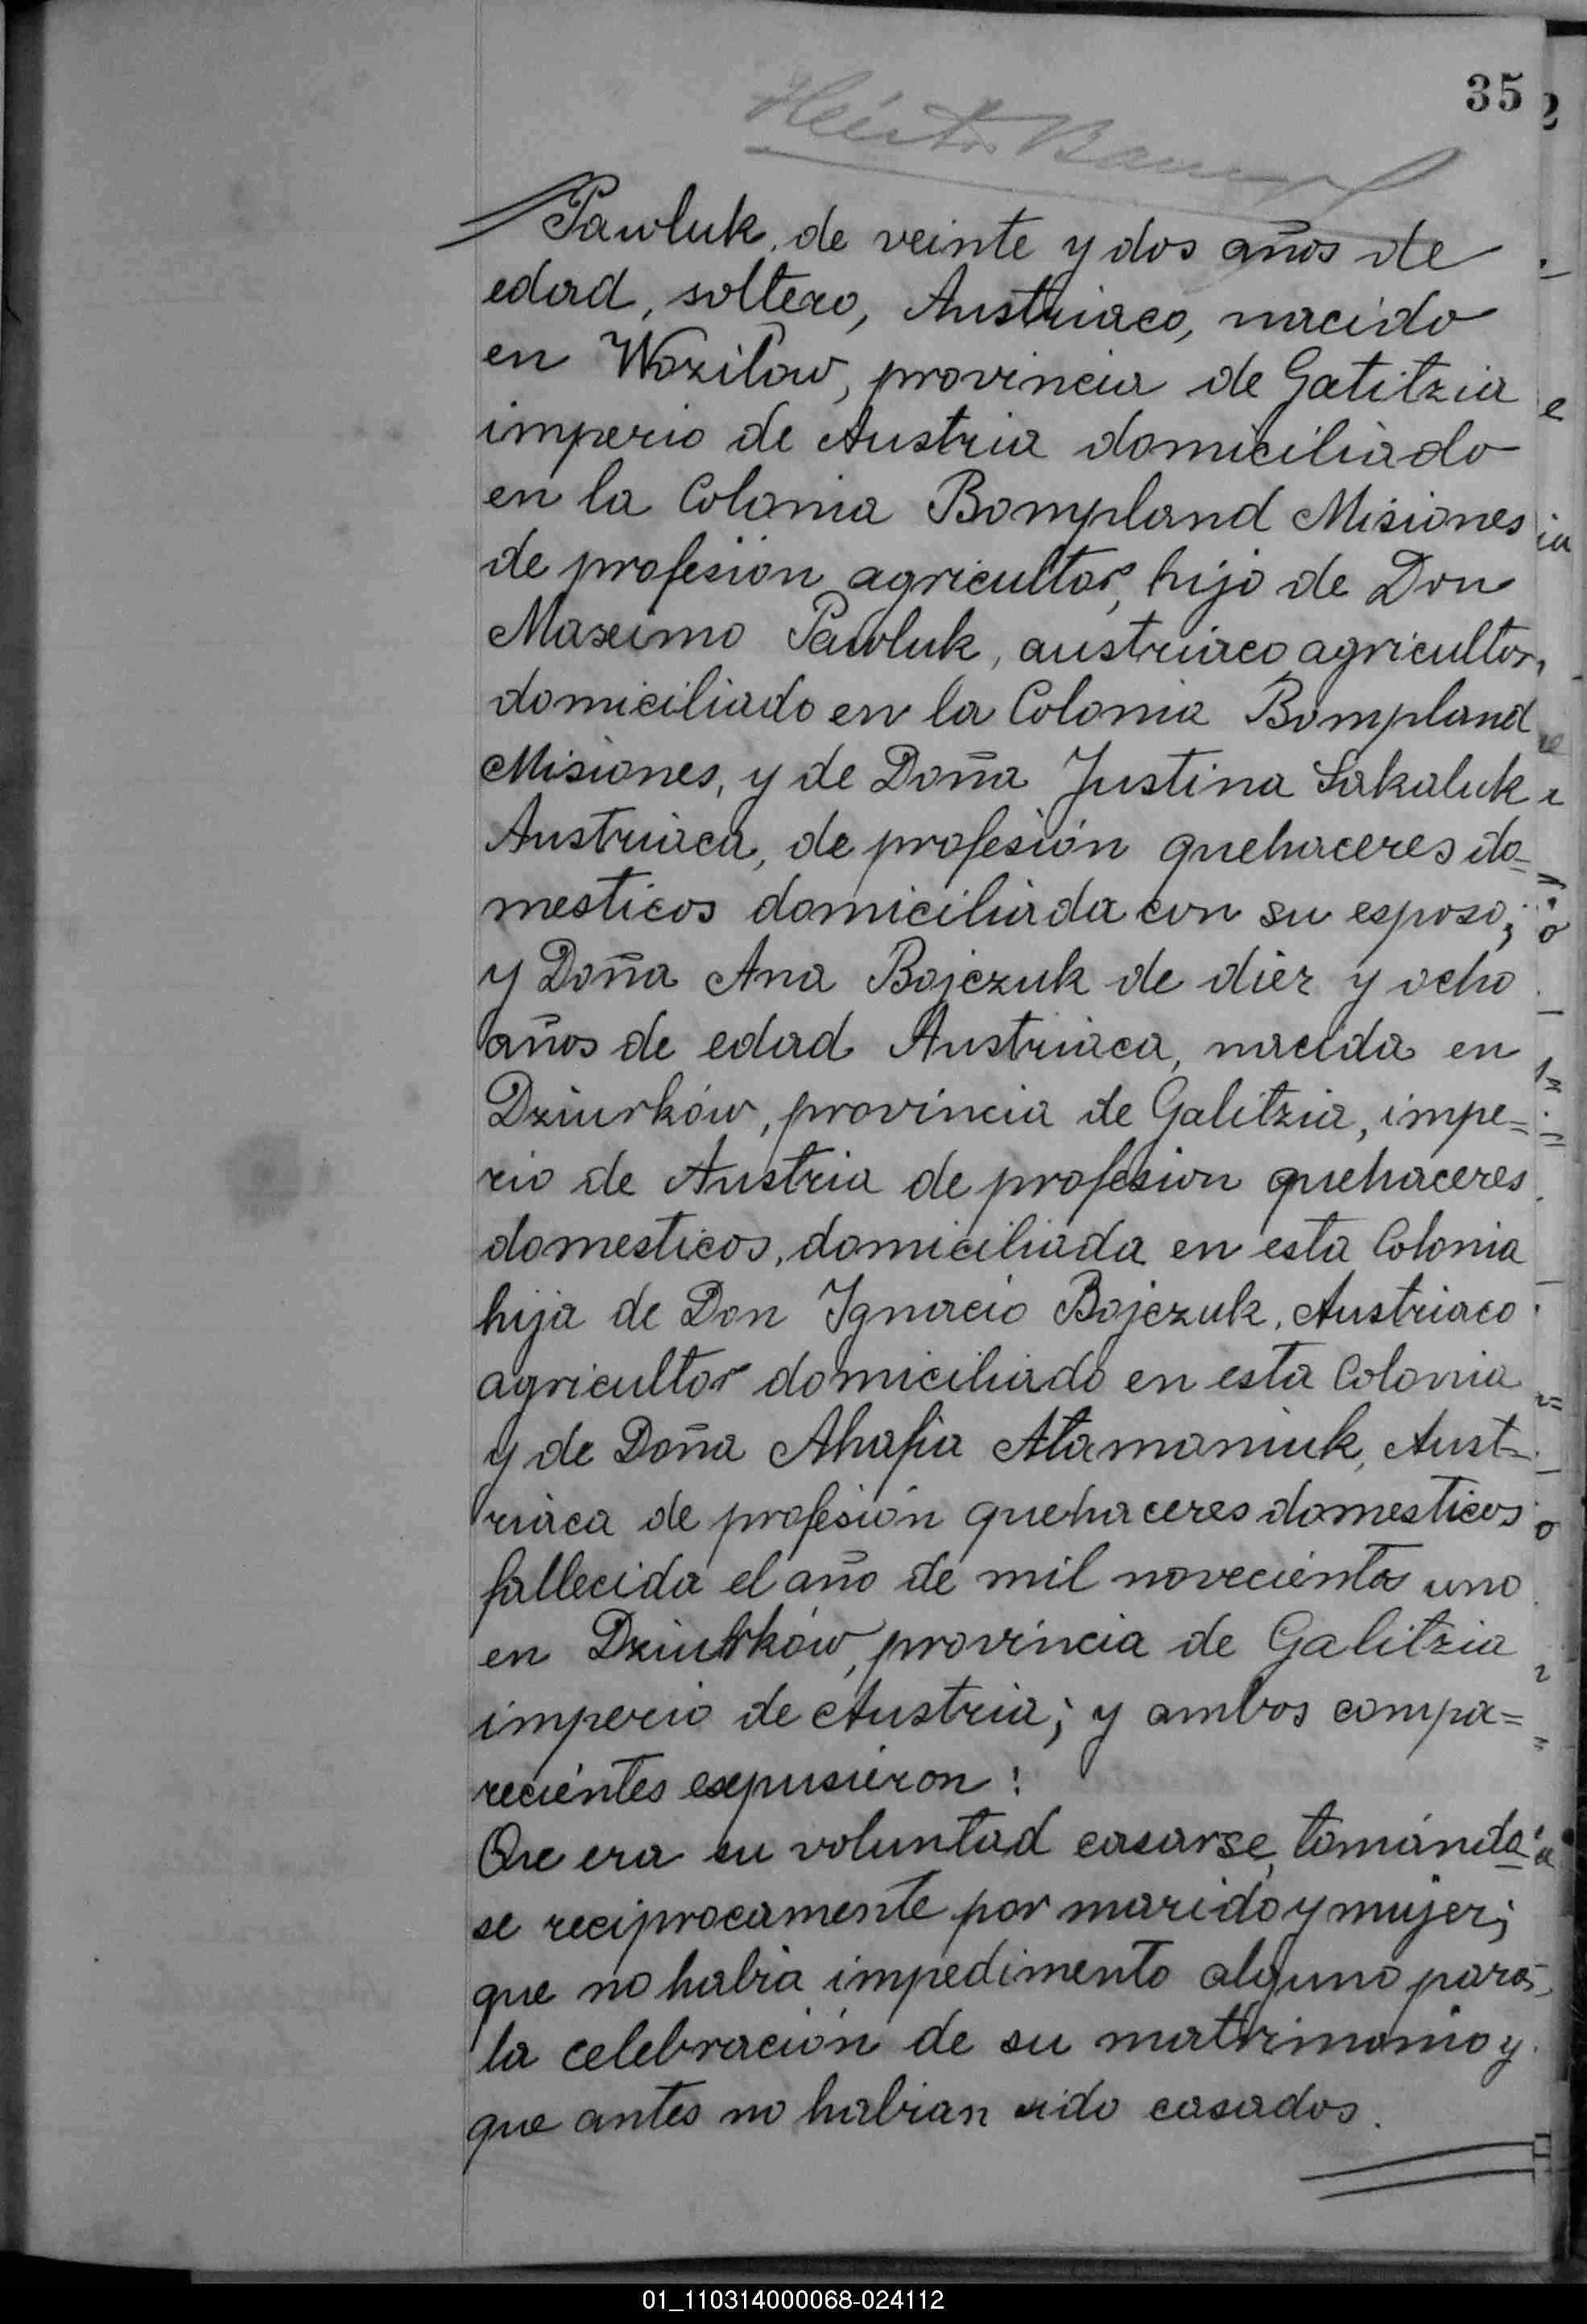 35
Pawluk, de veinte y dos años de
edad, soltero, Austriaco, nacido
en Wozilow, provincia de Gatitzia
imperio de Austria domiciliado
en la Colonia Bompland Misiones
de profesión agricultor, hijo de Don
Maximo Pawluk, austriaco agricultor,
domiciliado en la Colonia Bompland
Misiones, y de Doña Justina Sakaluk
Austriaca, de profesión quehaceres do=
mesticos domiciliada con su esposo;
y Doña Ana Bojczuk de diez y ocho
años de edad Austriaca, nacida en
Dziurków, provincia de Galitzia, impe=
rio de Austria de profesion quehaceres
domesticos, domiciliada en esta Colonia
hija de Don Ignacio Bojczuk, Austriaco
agricultor domiciliado en esta Colonia
y de Doña Ahafia Atamaniuk, Aust=
riaca de profesión quehaceres domesticos
fallecida el año de mil novecientos uno
en Dziurków, provincia de Galitzia
imperio de Austria; y ambos compa=
recientes expusieron:
Que era su voluntad casarse, tomándo=
se reciprocamente por marido y mujer;
que no habia impedimento alguno para
la celebración de su matrimonio y
que antes no habian sido casados.
01_110314000068-024112